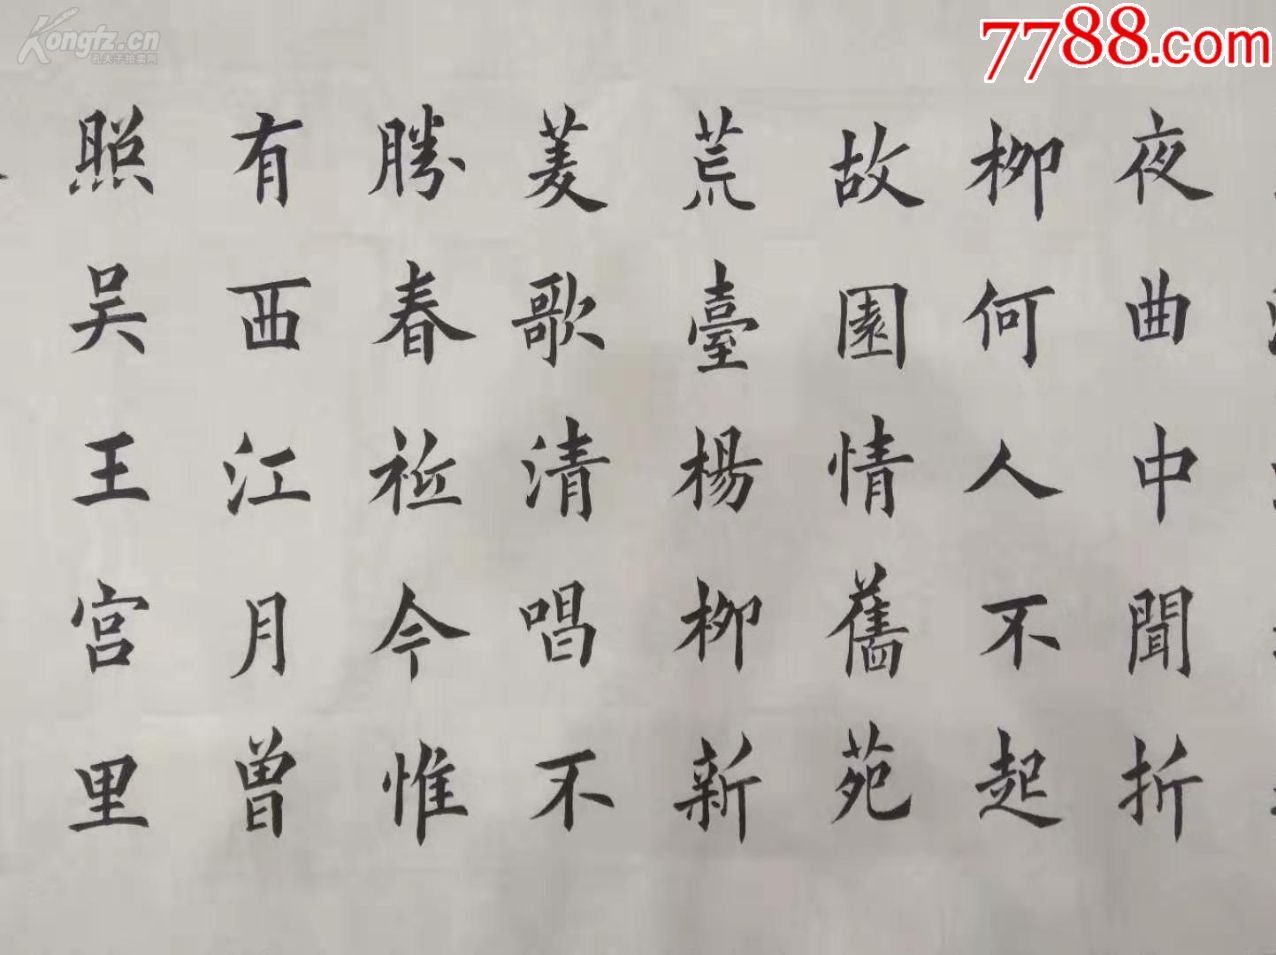 夜曲中聞折
柳何人不起
故園情舊苑
荒臺楊柳新
菱歌清唱不
勝春祗今惟
有西江月曾
照吴王宫里
Kongfz.cn
孔夫子拍卖网
7788.com